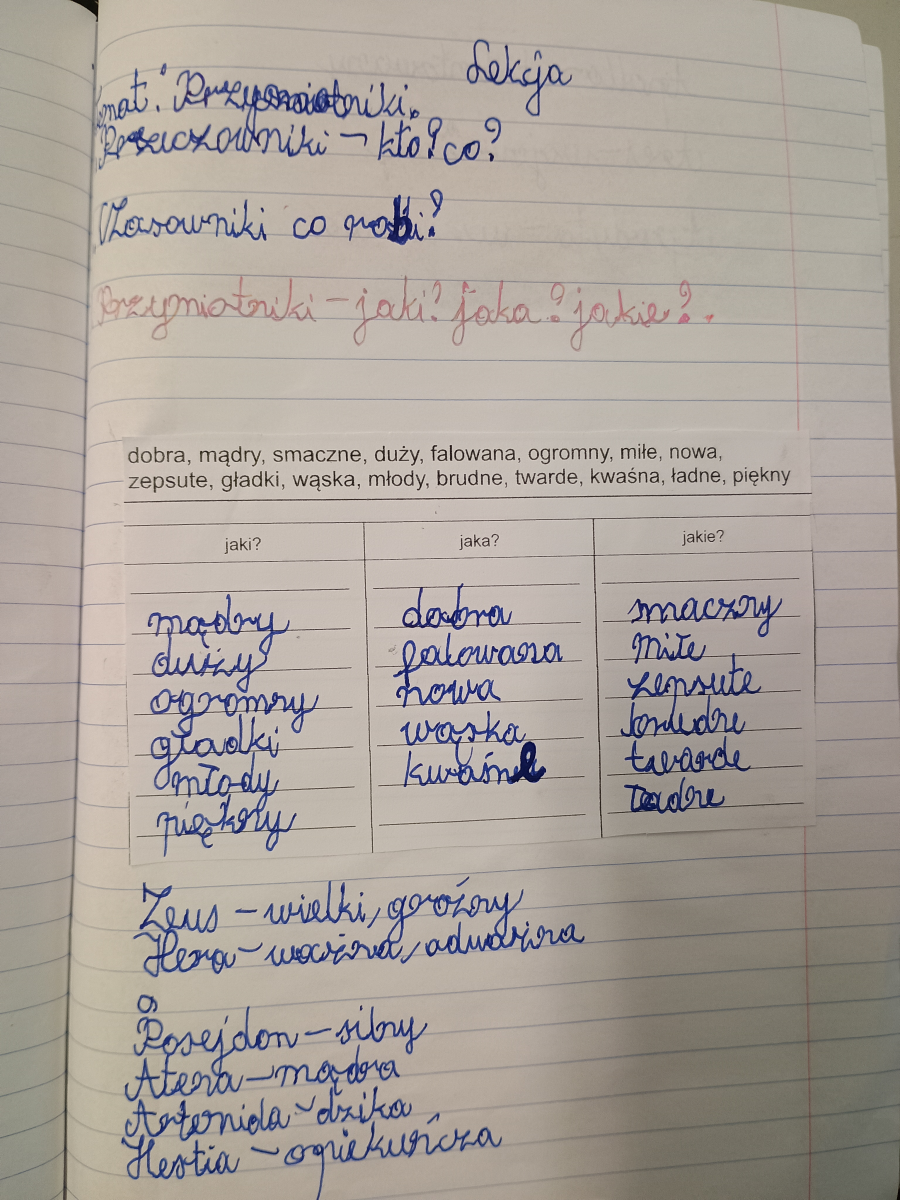 Lekcja
Temat: Przymiotniki.
Rzeczowniki – kto? co?
Czasowniki co robi?
Przymiotniki – jaki? jaka? jakie?.
dobra, mądry, smaczne, duży, falowana, ogromny, miłe, nowa,
zepsute, gładki, wąska, młody, brudne, twarde, kwaśna, ładne, piękny
jaki? jaka? jakie?
mądry dobra smaczny
duży falowana miłe
ogromny nowa zepsute
gładki wąska brudne
młody kwaśne twarde
piękny ładne
Zeus – wielki, groźny
Hera – ważna, odważna
Posejdon – silny
Atena – mądra
Artemida – dzika
Hestia – opiekuńcza